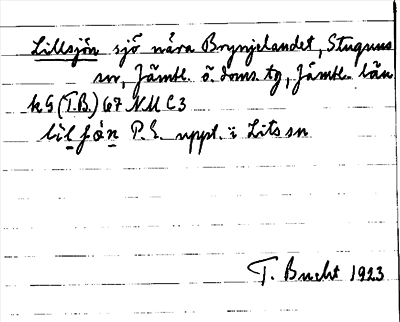 Lillsjön sjö nära Brynjelandet, Stuguns
sn, Jämtl. ö. doms. tg, Jämtl. län
k5 (T.B.) 67 NM C3
P.E. uppt. i Lits sn
T. Bucht 1923